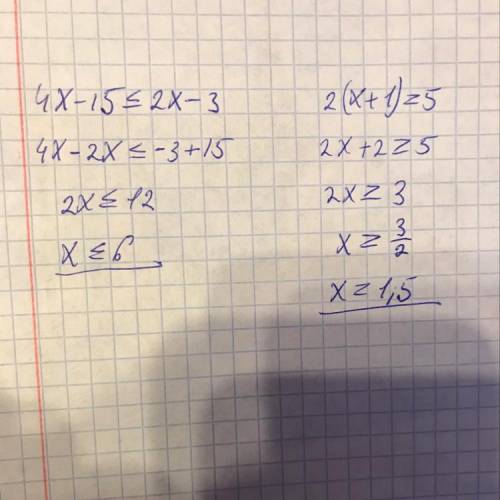 4x-15≤2x-3
4x-2x≤-3+15
2x≤12
x≤6
2(x+1)≥5
2x+2≥5
2x≥3
x≥3/2
x≥1,5